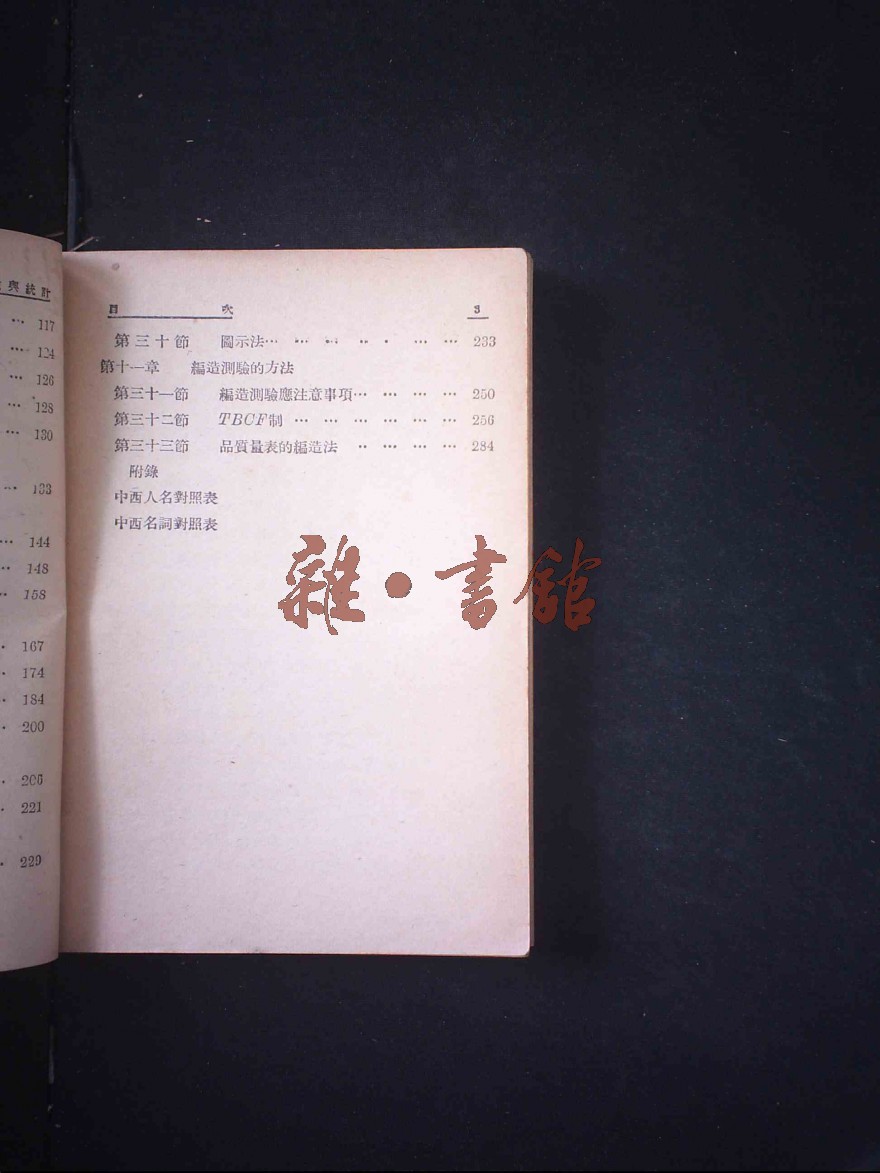 與統計
… 117
… 124
… 126
… 128
… 130
… 133
… 144
… 148
… 158
167
174
184
200
206
221
229
目 次 3
第三十節 圖示法… … … … … … … 233
第十一章 編造測驗的方法
第三十一節 編造測驗應注意事項… … … … 250
第三十二節 TBCF制 … … … … … … 256
第三十三節 品質量表的編造法 … … … … 284
附錄
中西人名對照表
中西名詞對照表
雜·書館